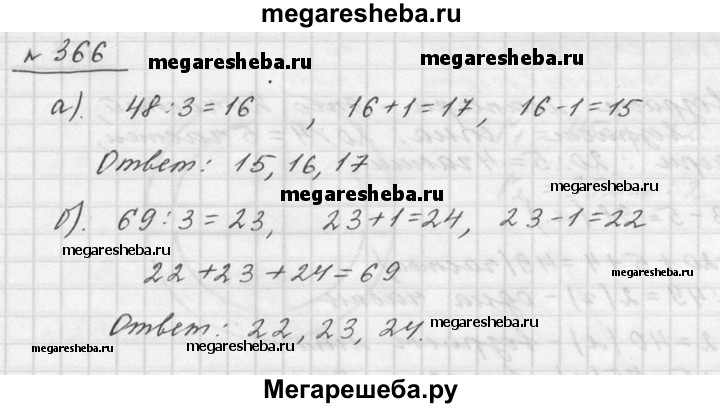 megaresheba.ru
№ 366
megaresheba.ru megaresheba.ru
а). 48:3=16, 16+1=17, 16-1=15
Ответ: 15, 16, 17
megaresheba.ru megaresheba.ru
б). 69:3=23, 23+1=24, 23-1=22
megaresheba.ru
22+23+24=69
megaresheba.ru
Ответ: 22, 23, 24.
megaresheba.ru megaresheba.ru
Мегарешеба.ру